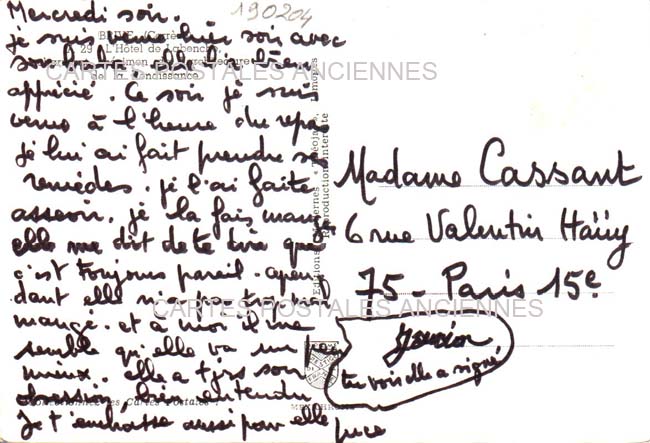 190204
Mercredi soir.
je suis venue hier soir avec
son, elle l'a bien
apprécié. Ce soir je suis
venue à l'heure du repas
je lui ai fait prendre se
remèdes. je l'ai faite
asseoir. je la fais mang
elle me dit de te dire que
c'est toujours pareil. apen
dant elle n'a pas trop mal
mangé. et à moi il me
semble qu'elle va un peu
mieux. elle a tjrs son
obsession, bien entendu
je t'embrasse aussi pour elle
BRIVE (Corrèze)
29 L'Hôtel de Labenche,
de la Renaissance
CARTES POSTALES ANCIENNES
CARTES POSTALES ANCIENNES
Editions Modernes « Théojac », Limoges
Reproduction interdite
Madame Cassant
6 rue Valentin Haüy
75 - Paris 15e
tu vois elle a signé
MEXICHROME